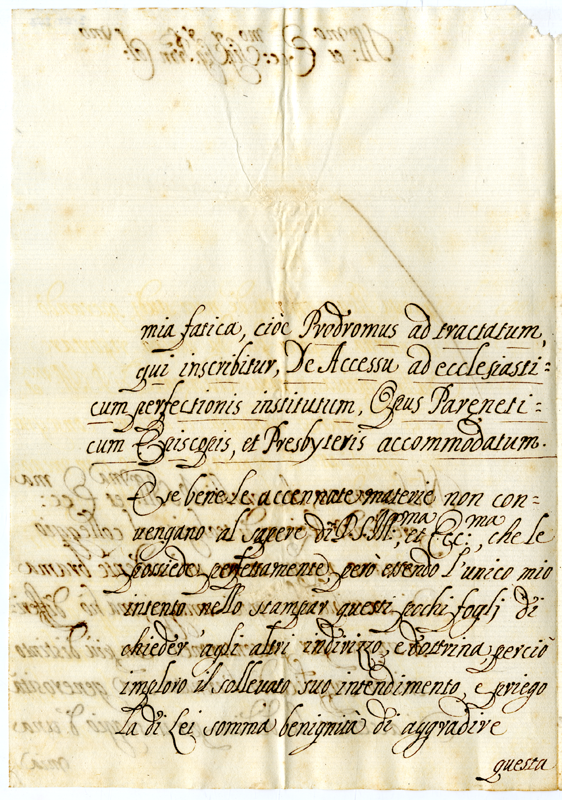 mia fatica, cioè Prodromus ad tractatum,
qui inscribitur, De Accessu ad ecclesiasti=
cum perfectionis institutum, Opus Pareneti=
cum Episcopis, et Presbyteris accommodatum.
E se bene le accennate materie non con=
uengano al sapere di V.S. Ill:ma, et Ecc:ma, che le
possiede perfettamente, però essendo l'unico mio
intento nello stampar questi pochi foglj di
chieder agli altri indirizzo, e dottrina, perciò
imploro il solleuato suo intendimento, e priego
la di Lei somma benignità di aggradire
questa